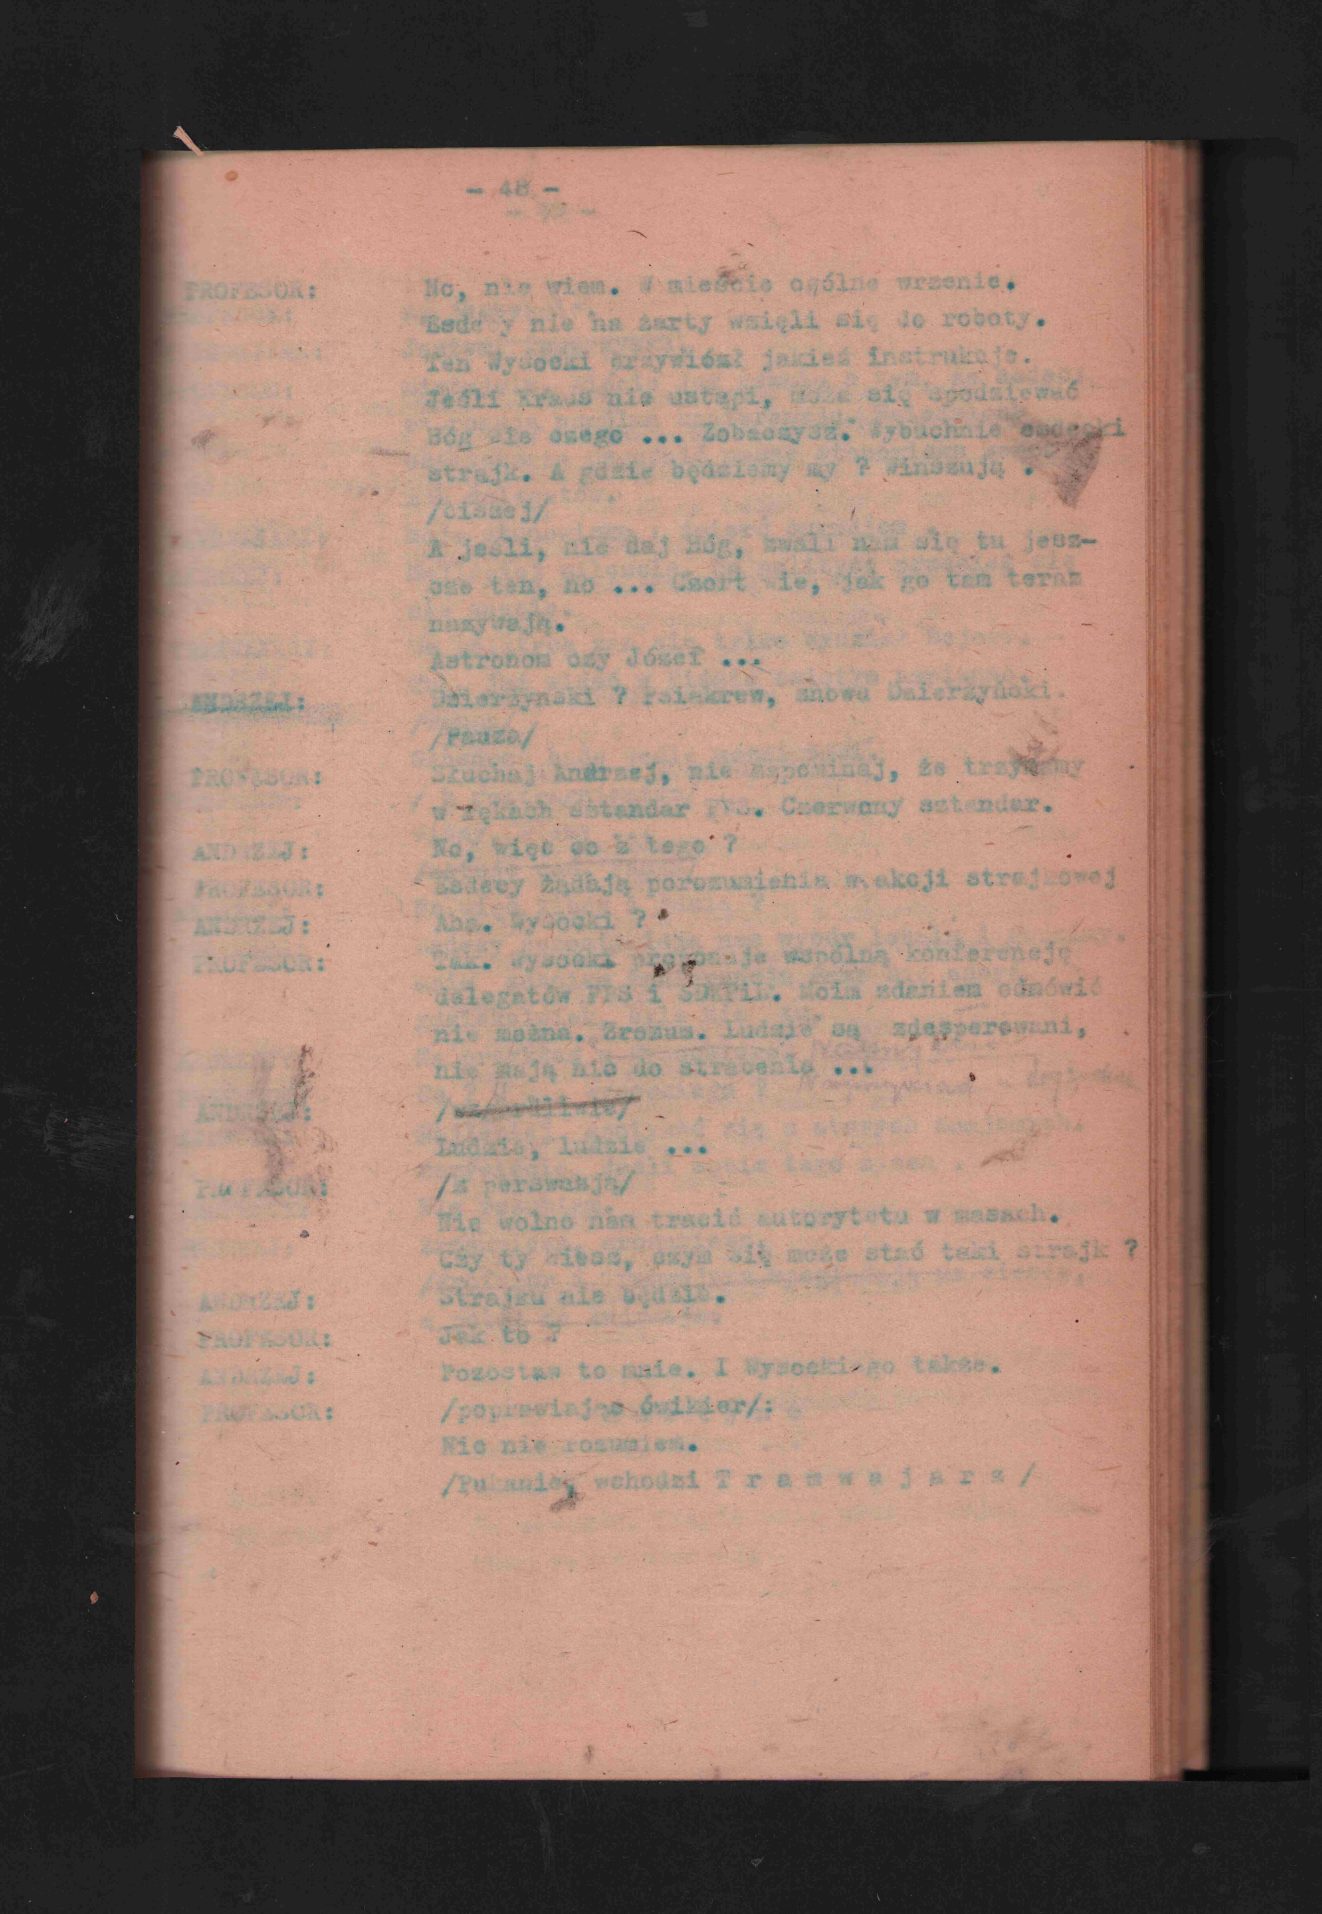 - 48 -
PROFESOR: No, nie wiem. W mieście ogólne wrzenie.
Esdecy nie na żarty wzięli się do roboty.
Ten Wysocki przywiózł jakieś instrukcje.
Jeśli Kraus nie ustąpi, może się spodziewać
Bóg wie czego ... Zobaczysz. Wybuchnie esdecki
strajk. A gdzie będziemy my ? Winszują .
/ciszej/
A jeśli, nie daj Bóg, zwali nam się tu jesz-
cze ten, no ... Czort wie, jak go tam teraz
nazywają.
Astronom czy Józef ...
ANDRZEJ: Dzierżyński ? Psiakrew, znowu Dzierżyński.
/Pauza/
PROFESOR: Słuchaj Andrzej, nie zapominaj, że trzymamy
w rękach sztandar PPS. Czerwony sztandar.
ANDRZEJ: No, więc co z tego ?
PROFESOR: Esdecy żądają porozumienia w akcji strajkowej
ANDRZEJ: Aha. Wysocki ?
PROFESOR: Tak. Wysocki proponuje wspólną konferencję
delegatów PPS i SDKPiL. Moim zdaniem odmówić
nie można. Zrozum. Ludzie są zdesperowani,
nie mają nic do stracenia ...
ANDRZEJ:
Ludzie, ludzie ...
PROFESOR: /z perswazją/
Nie wolno nam tracić autorytetu w masach.
Czy ty wiesz, czym się może stać taki strajk ?
ANDRZEJ: Strajku nie będzie.
PROFESOR: Jak to ?
ANDRZEJ: Pozostaw to mnie. I Wysockiego także.
PROFESOR: /poprawiając ćwikier/:
Nic nie rozumiem.
/Pukanie, wchodzi T r a m w a j a r z /